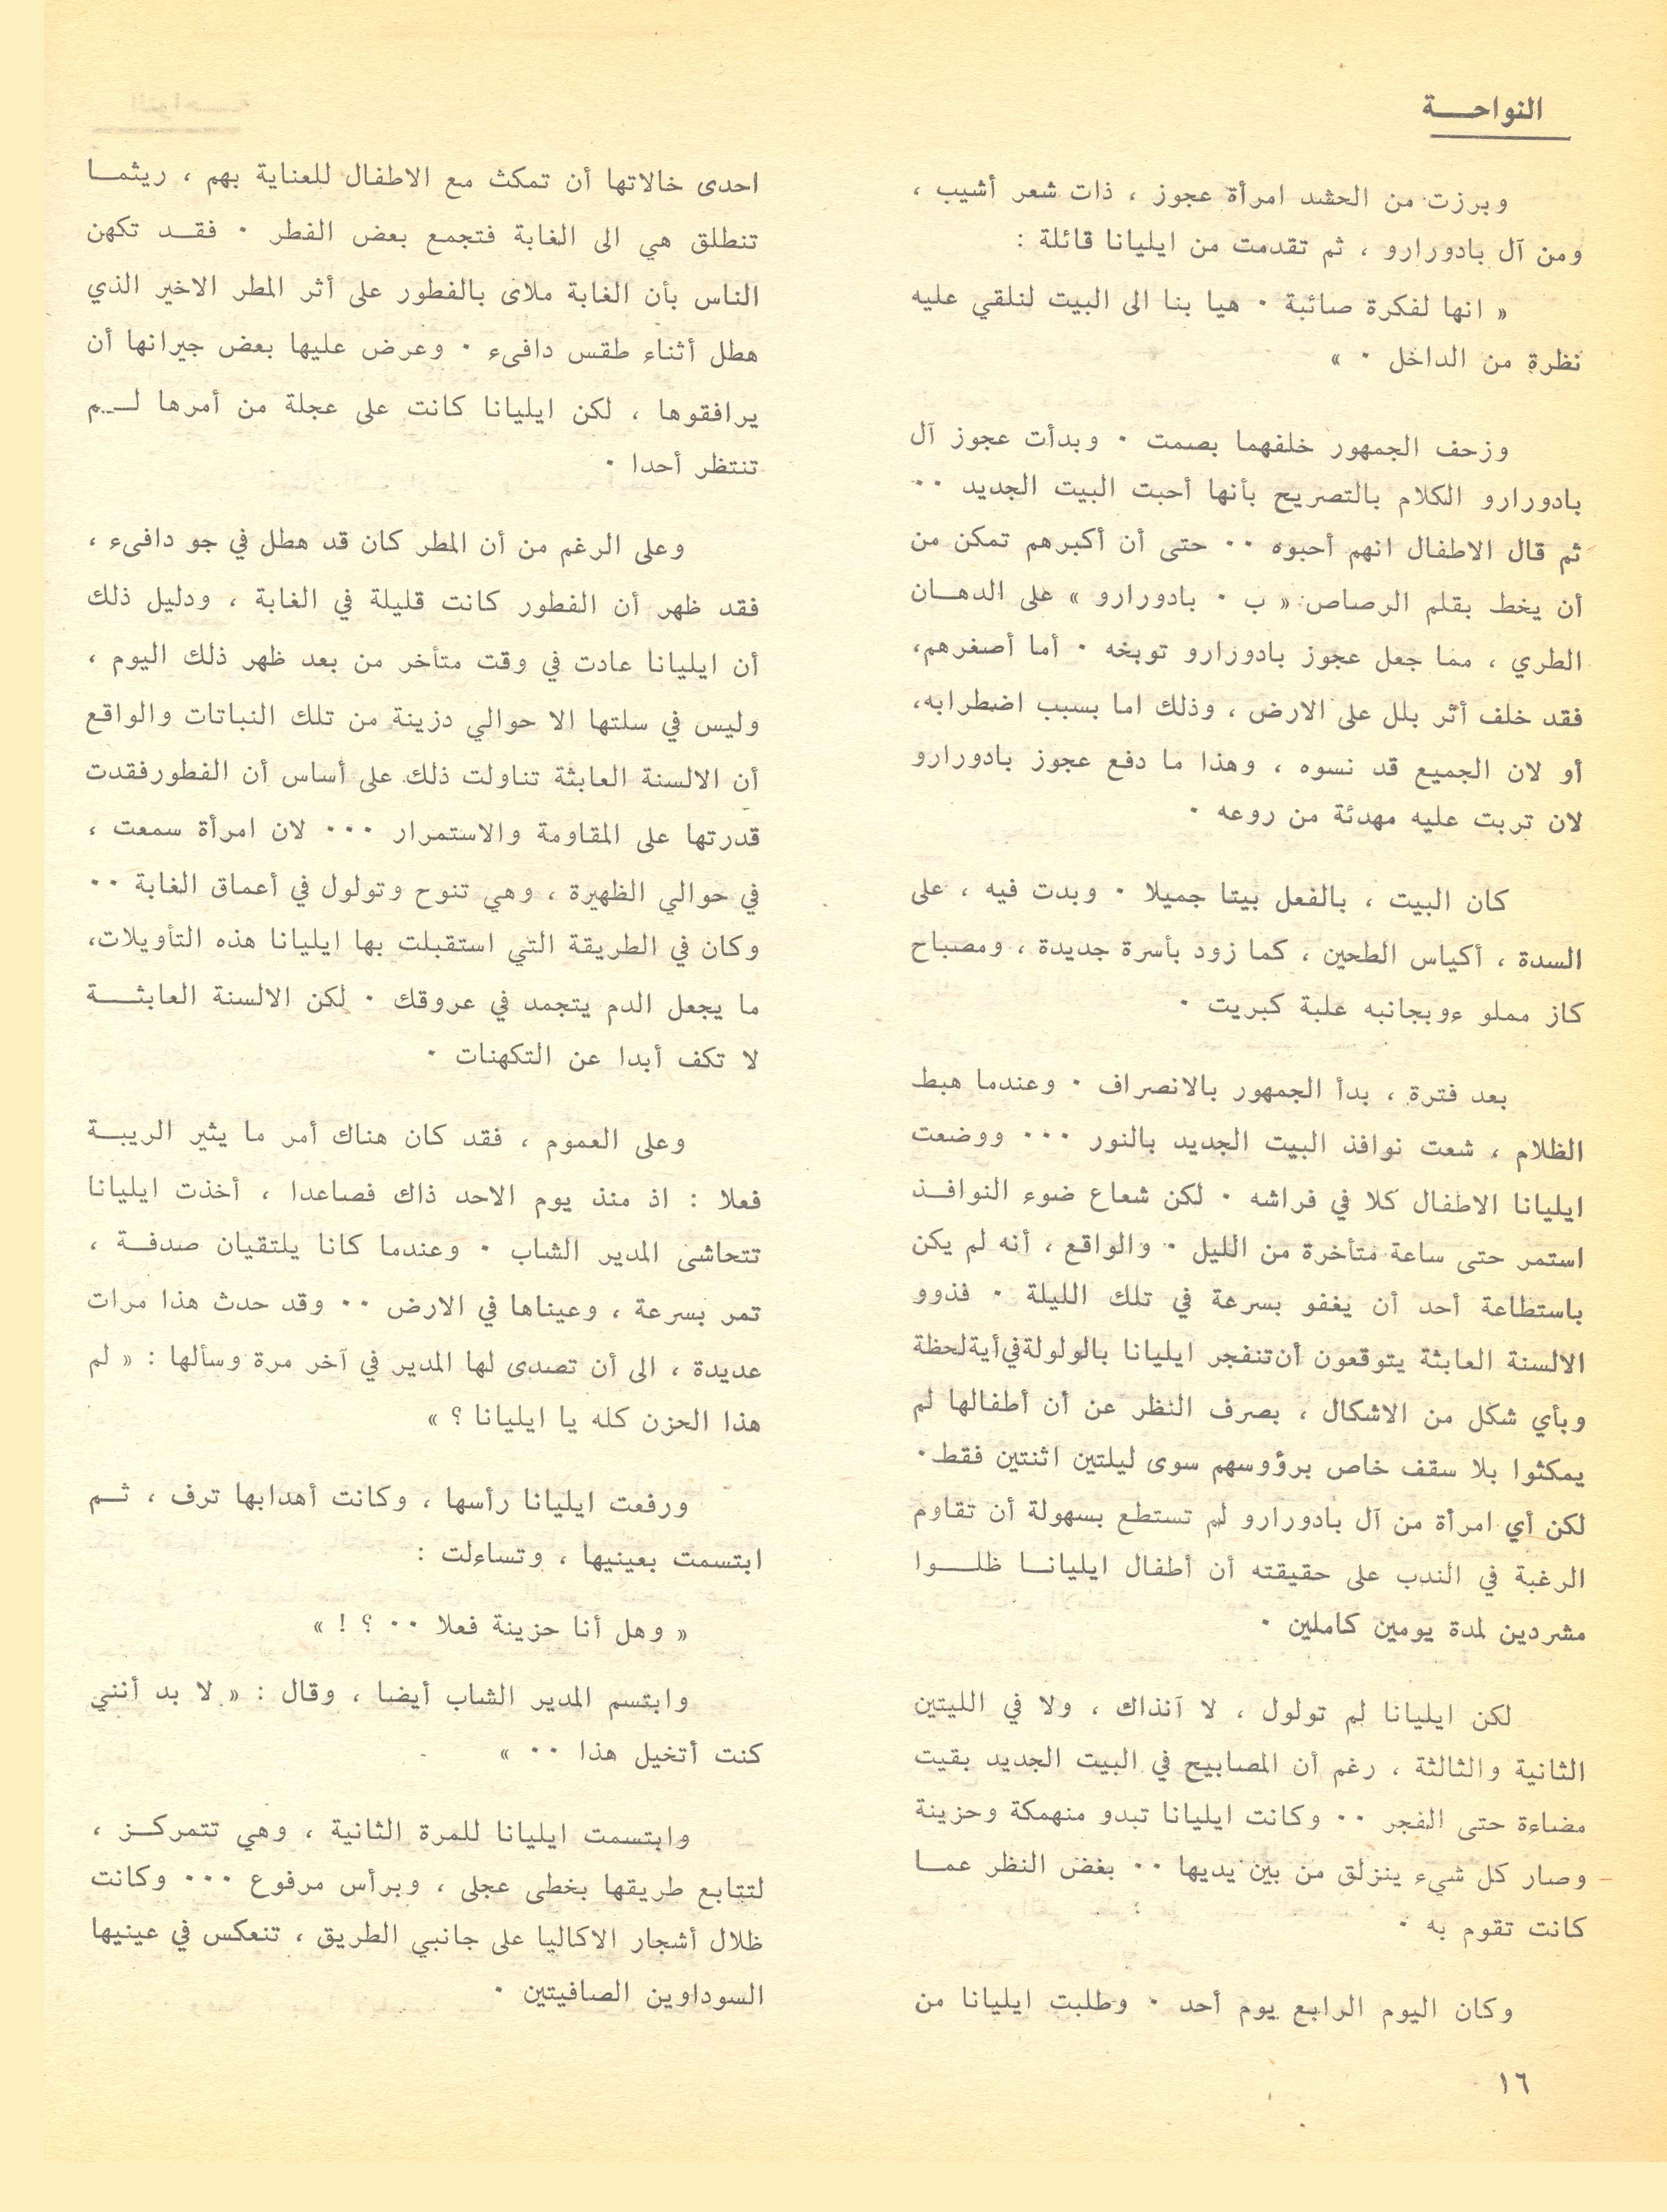 النواحـــة
وبرزت من الحشد امرأة عجوز ، ذات شعر أشيب ،
ومن آل بادورارو ، ثم تقدمت من ايليانا قائلة :
« انها لفكرة صائبة · هيا بنا الى البيت لنلقي عليه
نظرة من الداخل · »
وزحف الجمهور خلفهما بصمت · وبدأت عجوز آل
بادورارو الكلام بالتصريح بأنها أحبت البيت الجديد ··
ثم قال الاطفال انهم أحبوه ·· حتى أن أكبرهم تمكن من
أن يخط بقلم الرصاص « ب · بادورارو » على الدهـان
الطري ، مما جعل عجوز بادورارو توبخه · أما أصغرهم،
فقد خلف أثر بلل على الارض ، وذلك اما بسبب اضطرابه،
أو لان الجميع قد نسوه ، وهذا ما دفع عجوز بادورارو
لان تربت عليه مهدئة من روعه ·
كان البيت ، بالفعل بيتا جميلا · وبدت فيه ، على
السدة ، أكياس الطحين ، كما زود بأسرة جديدة ، ومصباح
كاز مملو ءوبجانبه علبة كبريت ·
بعد فترة ، بدأ الجمهور بالانصراف · وعندما هبط
الظلام ، شعت نوافذ البيت الجديد بالنور ··· ووضعت
ايليانا الاطفال كلا في فراشه · لكن شعاع ضوء النوافـذ
استمر حتى ساعة متأخرة من الليل · والواقع ، أنه لم يكن
باستطاعة أحد أن يغفو بسرعة في تلك الليلة · فذوو
الالسنة العابثة يتوقعون أن تنفجر ايليانا بالولولة في أية لحظة
وبأي شكل من الاشكال ، بصرف النظر عن أن أطفالها لم
يمكثوا بلا سقف خاص برؤوسهم سوى ليلتين اثنتين فقط·
لكن أي امرأة من آل بادورارو لم تستطع بسهولة أن تقاوم
الرغبة في الندب على حقيقته أن أطفال ايليانـا ظلـــوا
مشردين لمدة يومين كاملين ·
لكن ايليانا لم تولول ، لا آنذاك ، ولا في الليتين
الثانية والثالثة ، رغم أن المصابيح في البيت الجديد بقيت
مضاءة حتى الفجر ·· وكانت ايليانا تبدو منهمكة وحزينة
وصار كل شيء ينزلق من بين يديها ·· بغض النظر عمـا
كانت تقوم به ·
وكان اليوم الرابع يوم أحد · وطلبت ايليانا من
احدى خالاتها أن تمكث مع الاطفال للعناية بهم ، ريثمـا
تنطلق هي الى الغابة فتجمع بعض الفطر · فقـد تكهن
الناس بأن الغابة ملاى بالفطور على أثر المطر الاخير الذي
هطل أثناء طقس دافىء · وعرض عليها بعض جيرانها أن
يرافقوها ، لكن ايليانا كانت على عجلة من أمرها لـم
تنتظر أحدا ·
وعلى الرغم من أن المطر كان قد هطل في جو دافىء ،
فقد ظهر أن الفطور كانت قليلة في الغابة ، ودليل ذلك
أن ايليانا عادت في وقت متأخر من بعد ظهر ذلك اليوم ،
وليس في سلتها الا حوالي دزينة من تلك النباتات والواقع
أن الالسنة العابثة تناولت ذلك على أساس أن الفطورفقدت
قدرتها على المقاومة والاستمرار ··· لان امرأة سمعت ،
في حوالي الظهيرة ، وهي تنوح وتولول في أعماق الغابة ··
وكان في الطريقة التي استقبلت بها ايليانا هذه التأويلات،
ما يجعل الدم يتجمد في عروقك · لكن الالسنة العابثـــة
لا تكف أبدا عن التكهنات ·
وعلى العموم ، فقد كان هناك أمر ما يثير الريبـة
فعلا : اذ منذ يوم الاحد ذاك فصاعدا ، أخذت ايليانا
تتحاشى المدير الشاب · وعندما كانا يلتقيان صدفـة ،
تمر بسرعة ، وعيناها في الارض ·· وقد حدث هذا مرات
عديدة ، الى أن تصدى لها المدير في آخر مرة وسألها : « لم
هذا الحزن كله يا ايليانا ؟ »
ورفعت ايليانا رأسها ، وكانت أهدابها ترف ، ثـم
ابتسمت بعينيها ، وتساءلت :
« وهل أنا حزينة فعلا ·· ؟ ! »
وابتسم المدير الشاب أيضا ، وقال : « لا بد أنني
كنت أتخيل هذا ·· »
وابتسمت ايليانا للمرة الثانية ، وهي تتمركـز ،
لتتابع طريقها بخطى عجلى ، وبرأس مرفوع ··· وكانت
ظلال أشجار الاكاليا على جانبي الطريق ، تنعكس في عينيها
السوداوين الصافيتين ·
١٦